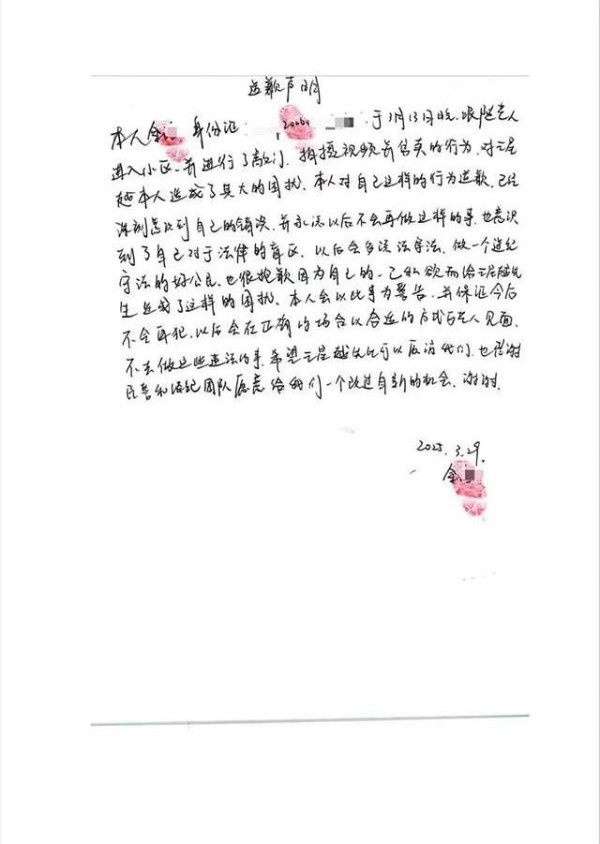 道歉声明
本人金 身份证: 于3月13日晚,跟随艺人
进入小区,并进行了敲门、拍摄视频并售卖的行为,对
越本人造成了莫大的困扰。本人对自己这样的行为道歉,已经
深刻意识到自己的错误,并永远以后不会再做这样的事,也意识
到了自己对于法律的盲区,以后会多读法守法,做一个遵纪
守法的好公民,也很抱歉因为自己的一己私欲而给 越先
生造成了这样的困扰。本人会以此事为警告,并保证今后
不会再犯,以后会在正确的场合以合适的方式与艺人见面,
不去做这些违法的事,希望 越先生可以原谅我们,也感谢
民警和经纪团队愿意给我们一个改过自新的机会。谢谢。
2025.3.29.
金